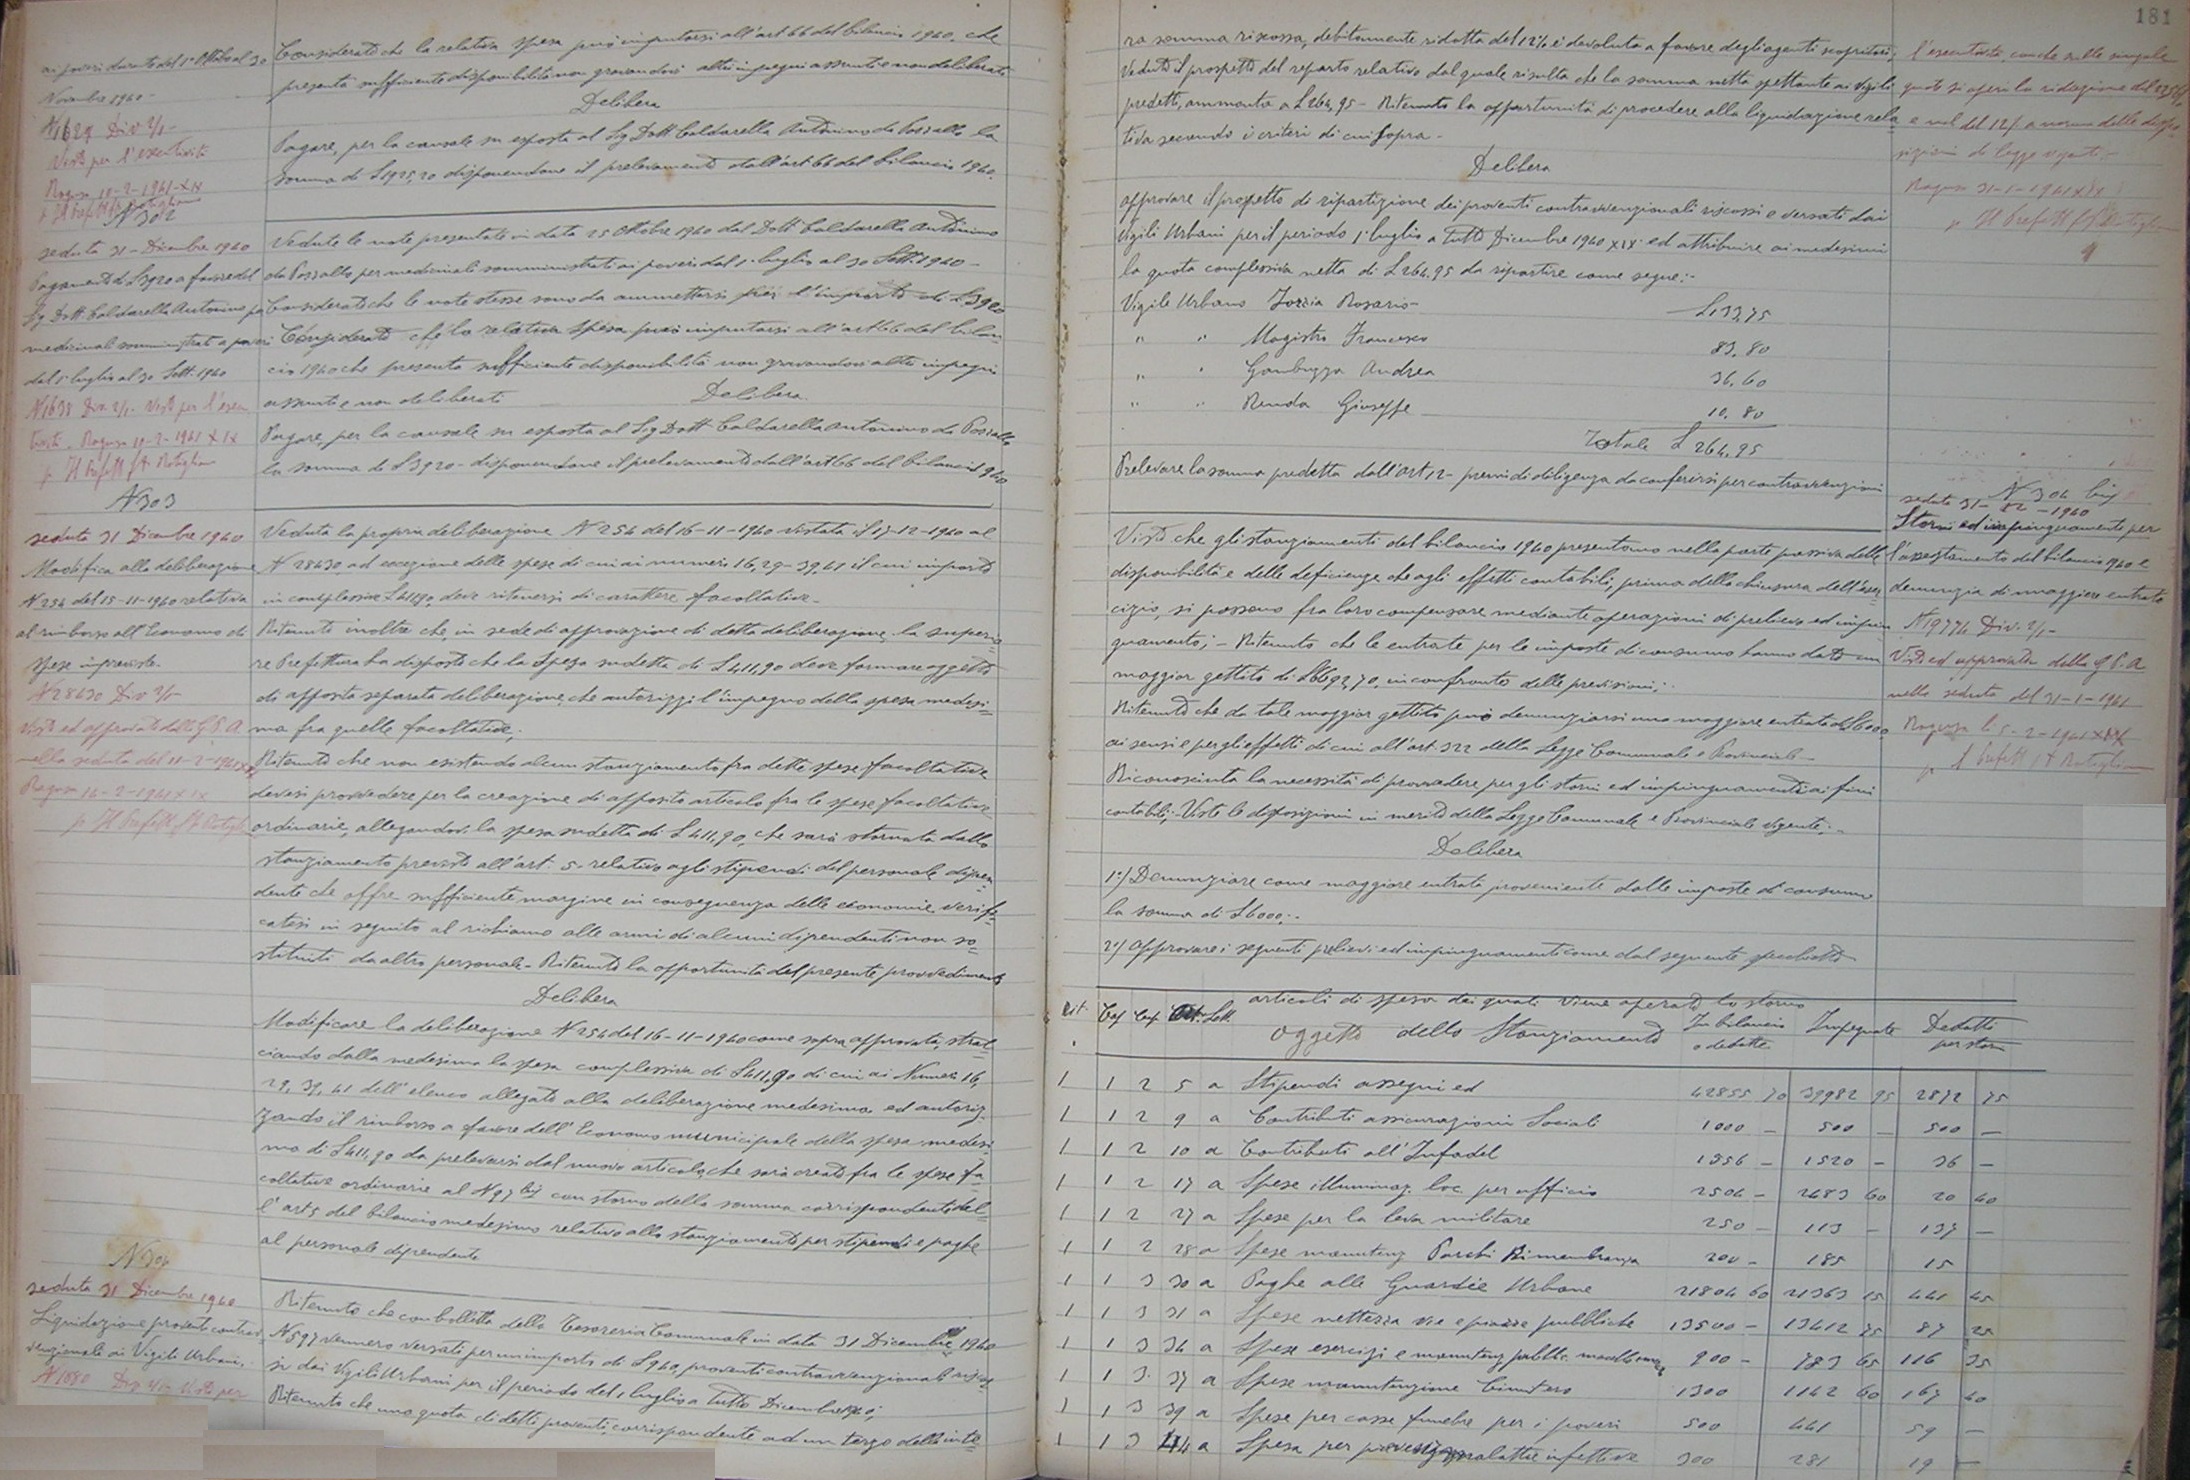 ai poveri durante dal 1° Ottobre al 30
Novembre 1940 -
N 1629 Div 2/1 -
Visto per l'esecutività
Ragusa 10-2-1941-XIX
p. Il Prefetto
Considerato che la relativa spesa può imputarsi all'art 66 del bilancio 1940, che
presenta sufficiente disponibilità non gravandovi altri impegni assunti e non deliberati
Delibera
Pagare, per la causale su esposta al Sig Dott Caldarella Antonino da Pozzallo la
somma di £ 1925,20 disponendone il prelevamento dall'art 66 del bilancio 1940.
N 302
seduta 31 - Dicembre 1940
Pagamento di £ 3920 a favore del
Sig Dott. Caldarella Antonino per
medicinali somministrati a poveri
dal 1° luglio al 30 Sett. 1940
N 1638 Div. 2/1 - Visto per l'esecu
tività. Ragusa 10-2-1941 XIX
p. Il Prefetto
Vedute le note presentate in data 25 Ottobre 1940 dal Dott Caldarella Antonino
da Pozzallo per medicinali somministrati ai poveri dal 1° luglio al 30 Sett. 1940 -
Considerato che le note stesse sono da ammettersi per l'importo di £ 3920
Considerato che la relativa spesa può imputarsi all'art 66 del bilan
cio 1940 che presenta sufficiente disponibilità non gravandovi altri impegni
assunti e non deliberati Delibera
Pagare, per la causale su esposta al Sig Dott Caldarella Antonino da Pozzallo
la somma di £ 3920 - disponendone il prelevamento dall'art 66 del bilancio 1940
N 303
seduta 31 Dicembre 1940
Modifica alla deliberazione
N 254 del 15-11-1940 relativa
al rimborso all'Economo di
spese impreviste.
N 28630 Div 2/1 -
Visto ed approvato dalla G.P.A
nella seduta del 11-2-1941 XIX
Ragusa 14-2-1941 XIX
p. Il Prefetto
Veduta la propria deliberazione N 254 del 16-11-1940 vistata il 17-12-1940 al
N 28630, ad eccezione delle spese di cui ai numeri 16, 29-39, 41 il cui importo
in complessive £ 411,90, deve ritenersi di carattere facoltativo -
Ritenuto inoltre che in sede di approvazione di detta deliberazione, la superio=
re Prefettura ha disposto che la spesa sudetta di £ 411,90 deve formare oggetto
di apposita separata deliberazione, che autorizzi l'impegno della spesa medesi=
ma fra quelle facoltative;
Ritenuto che non esistendo alcun stanziamento fra dette spese facoltative
devesi provvedere per la creazione di apposito articolo fra le spese facoltative
ordinarie, allegandovi la spesa sudetta di £ 411,90, che sarà stornata dallo
stanziamento previsto all'art. 5 - relativo agli stipendi del personale dipen=
dente che offre sufficiente margine in conseguenza delle economie verifi=
catesi in seguito al richiamo alle armi di alcuni dipendenti non so=
stituiti da altro personale - Ritenuta la opportunità del presente provvedimento
Delibera
Modificare la deliberazione N 254 del 16-11-1940 come sopra approvata, stral=
ciando dalla medesima la spesa complessiva di £ 411,90 di cui ai Numeri 16,
29, 39, 41 dell'elenco allegato alla deliberazione medesima ed autoriz=
zando il rimborso a favore dell'Economo municipale della spesa medesi=
ma di £ 411,90 da prelevarsi dal nuovo articolo, che sarà creato fra le spese fa=
coltative ordinarie al N 97 bis con storno della somma corrispondente del=
l'art 5 del bilancio medesimo relativo allo stanziamento per stipendi e paghe
al personale dipendente
N 304
seduta 31 Dicembre 1940
Liquidazione proventi contrav=
venzionali ai Vigili Urbani.
N 1080 Div 2/1 - Visto per
Ritenuto che con bolletta della Tesoreria Comunale in data 31 Dicembre 1940
N 597 vennero versati per un importo di £ 940, proventi contravvenzionali riscos=
si dai Vigili Urbani per il periodo del 1 luglio a tutto Dicembre 1940;
Ritenuto che una quota di detti proventi, corrispondente ad un terzo della inte=
181
ra somma riscossa, debitamente ridotta del 12% è devoluta a favore degli agenti scopritori;
Veduto il prospetto del reparto relativo dal quale risulta che la somma netta spettante ai Vigili
predetti, ammonta a £ 264,95 - Ritenuta la opportunità di procedere alla liquidazione rela
tiva secondo i criteri di cui sopra -
Delibera
approvare il prospetto di ripartizione dei proventi contravvenzionali riscossi e versati dai
Vigili Urbani per il periodo 1° luglio a tutto Dicembre 1940 XIX° ed attribuire ai medesimi
la quota complessiva netta di £ 264,95 da ripartire come segue: -
Vigile Urbano Iozzia Rosario - £ 133,75
" " Magistro Francesco 83.80
" " Gambuzza Andrea 36.60
" " Renda Giuseppe 10.80
Totale £ 264.95
Prelevare la somma predetta dall'art 12 - premi di diligenza da conferirsi per contravvenzioni
l'esecutività anche sulle singole
quote si operi la riduzione del
e nel del 12% a norma delle dispo
sizioni di legge vigenti -
Ragusa 31-1-1941 XIX
p Il Prefetto
N 304 bis
seduta 31-12-1940
Storni ed impinguamenti per
l'assestamento del bilancio 1940 e
denunzia di maggiore entrata
N 19774 Div. 2/1 -
Visto ed approvato dalla G.P.A
nella seduta del 31-1-1941
Ragusa li 5-2-1941 XIX
p Il Prefetto
Visto che gli stanziamenti del bilancio 1940 presentano nella parte passiva delle
disponibilità e delle deficienze che agli effetti contabili, prima della chiusura dell'eser
cizio, si possono fra loro compensare mediante operazioni di prelievo ed impin
guamento; - Ritenuto che le entrate per le imposte di consumo hanno dato un
maggior gettito di £ 6692,70, in confronto delle previsioni;
Ritenuto che da tale maggior gettito può denunziarsi una maggiore entrata di £ 6000
ai sensi e per gli effetti di cui all'art. 322 della Legge Comunale e Provinciale -
Riconosciuta la necessità di provvedere per gli storni ed impinguamenti ai fini
contabili; - Viste le disposizioni in merito della Legge Comunale e Provinciale vigente; -
Delibera
1°/ Denunziare come maggiore entrata proveniente dalle imposte di consumo
la somma di £ 6000: -
2°/ Approvare i seguenti prelievi ed impinguamenti come dal seguente specchietto
articoli di spesa dai quali viene operato lo storno
Tit. Cap Cap Art. Lett. Oggetto dello Stanziamento In bilancio o dedotte Impegnate Dedotti per storni
1 1 2 5 a Stipendi assegni ed 42855 70 39982 95 2872 75
1 1 2 9 a Contributi assicurazioni Sociali 1000 - 500 - 500 -
1 1 2 10 a Contributi all'Infadel 1356 - 1320 - 36 -
1 1 2 17 a Spese illuminaz. loc. per ufficio 2504 - 2483 60 20 40
1 1 2 27 a Spese per la leva militare 250 - 113 - 137 -
1 1 2 28 a Spese manutenz Parchi Rimembranza 200 - 185 15
1 1 3 30 a Paghe alle Guardie Urbane 21804 60 21363 15 441 45
1 1 3 31 a Spese nettezza vie e piazze pubbliche 13500 - 13412 75 87 25
1 1 3 34 a Spese esercizi e manutenz pubbl. macello 900 - 783 65 116 35
1 1 3 37 a Spese manutenzione Cimitero 1300 1142 60 167 40
1 1 3 39 a Spese per casse funebre per i poveri 500 441 59 -
1 1 3 44 a Spesa per malattie infettive 300 281 19 -